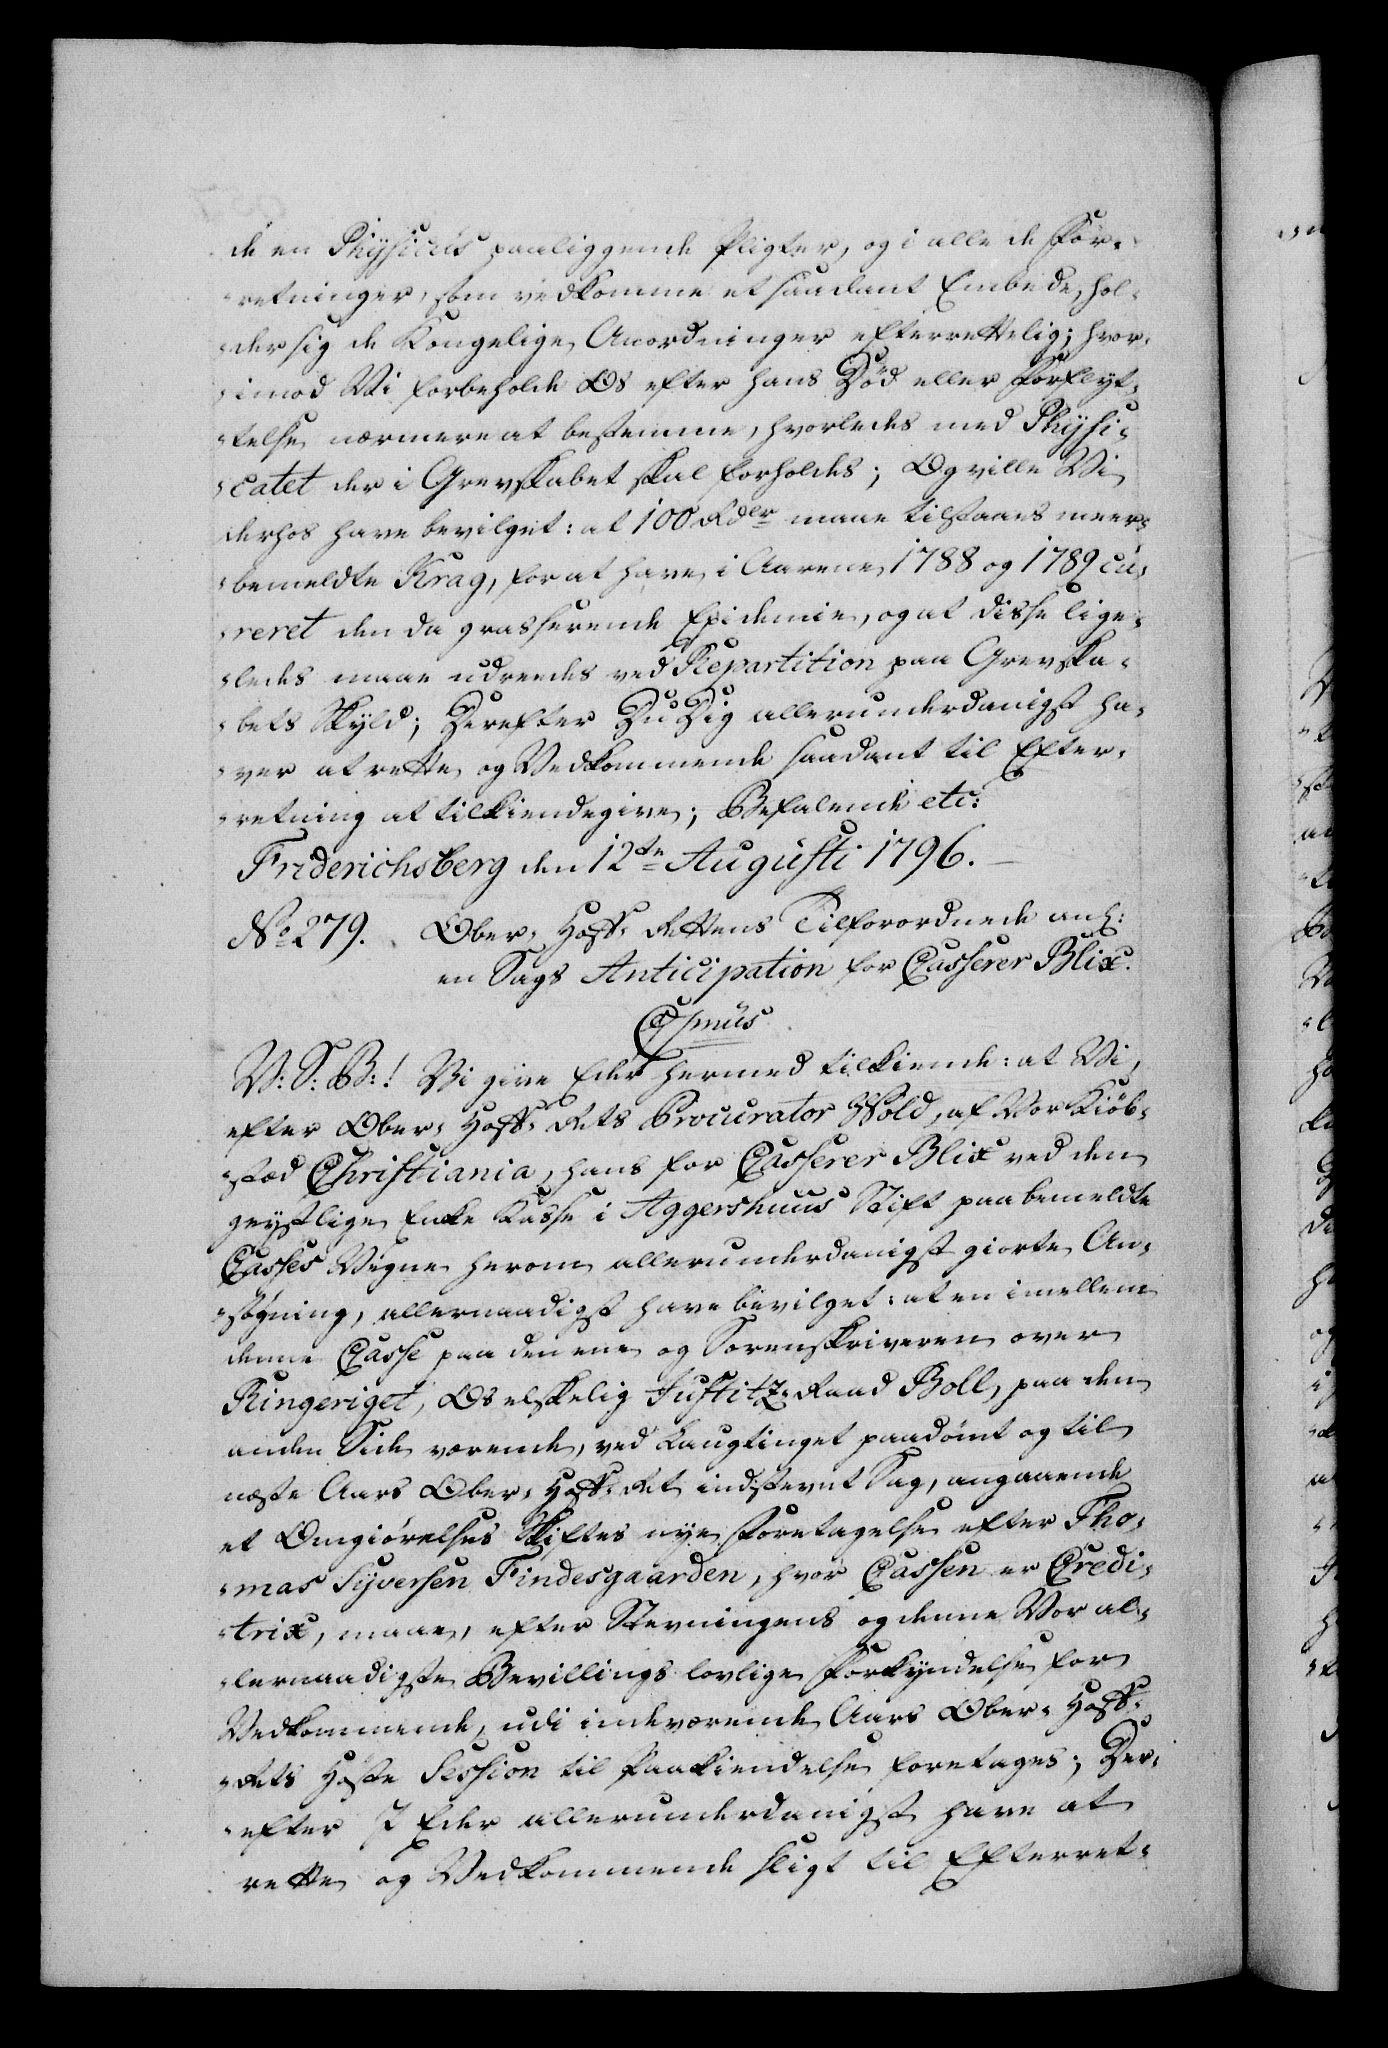 de en Physicus paaliggende Pligter, og i alle de For-
-retninger, som vedkomme et saadant Embede, hol-
-der sig de Kongelige Anordninger efterrettelig; hvor-
-imod Vi forbeholde Os efter hans Död eller Forflyt-
-telse nærmere at bestemme, hvorledes med Physi-
-catet der i Grevskabet skal forholdes; Og ville Vi
derhos have bevilget: at 100 Rdlr maae tilstaaes meer-
-bemeldte Krag, for at have i Aarene 1788 og 1789 cu-
-reret den da grasserende Epidemie, og at disse lige-
-ledes maae udreedes ved Repartition paa Grevska-
-bets Skyld; Derefter Du Dig allerunderdanigst ha-
-ver at rette, og Vedkommende saadant til Efter-
-retning at tilkiendegive; Befalende etc:
Friderichsberg den 12te Augusti 1796.
No 279. Ober-Hoff-Rettens Tilforordnede anl:
en Sags Anticipation for Casserer Blix.
C7mus
V: S: B:! Vi give Eder hermed tilkiende: at Vi,
efter Ober-Hoff-Rets Procurator Wold, af Vor Kiöb-
-stæd Christiania, hans for Casserer Blix ved den
geystlige Enke Kasse i Aggershuus Stift paa bemeldte
Casses Vegne herom allerunderdanigst giorte An-
-søgning, allernaadigst have bevilget: at en imellem
denne Casse paa den ene og Sorenskriveren over
Ringeriget, Os elskelig Justitz-Raad Boll, paa den
anden Side værende, ved Laugtinget paadömt og til
næste Aars Ober-Hoff-Ret indstevnt Sag, angaaende
et Omgiörelses Skiftes nye Foretagelse efter Tho-
-mas Syversen Findesgaarden, hvor Cassen er Credi-
-trix, maae, efter Stevningens og denne Vor al-
-lernaadigste Bevillings lovlige Forkyndelse for
Vedkommende, udi indeværende Aars Ober-Hoff-
-Rets Höste Session til Paakiendelse foretages; Der-
-efter I Eder allerunderdanigst have at
rette og Vedkommende sligt til Efterret-